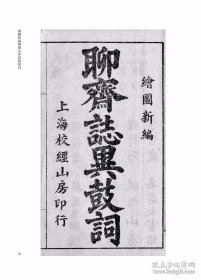 繪圖新編
聊齋誌異鼓詞
上海校經山房印行